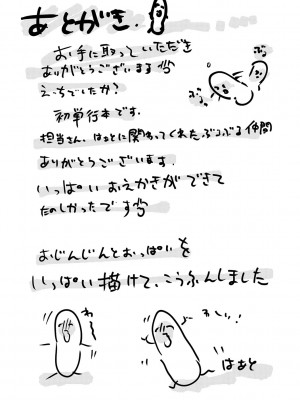 あとがき.
お手に取っていただき
ありがとうございます
えっちでしたか？
初単行本です.
担当さん、はぁとに関わってくれた ぶるぶる仲間
ありがとうございます.
いっぱいおえかきができて
たのしかったです
おじんじんとおっぱいを
いっぱい描けて、こうふんしました
わー
わーい!
はぁと